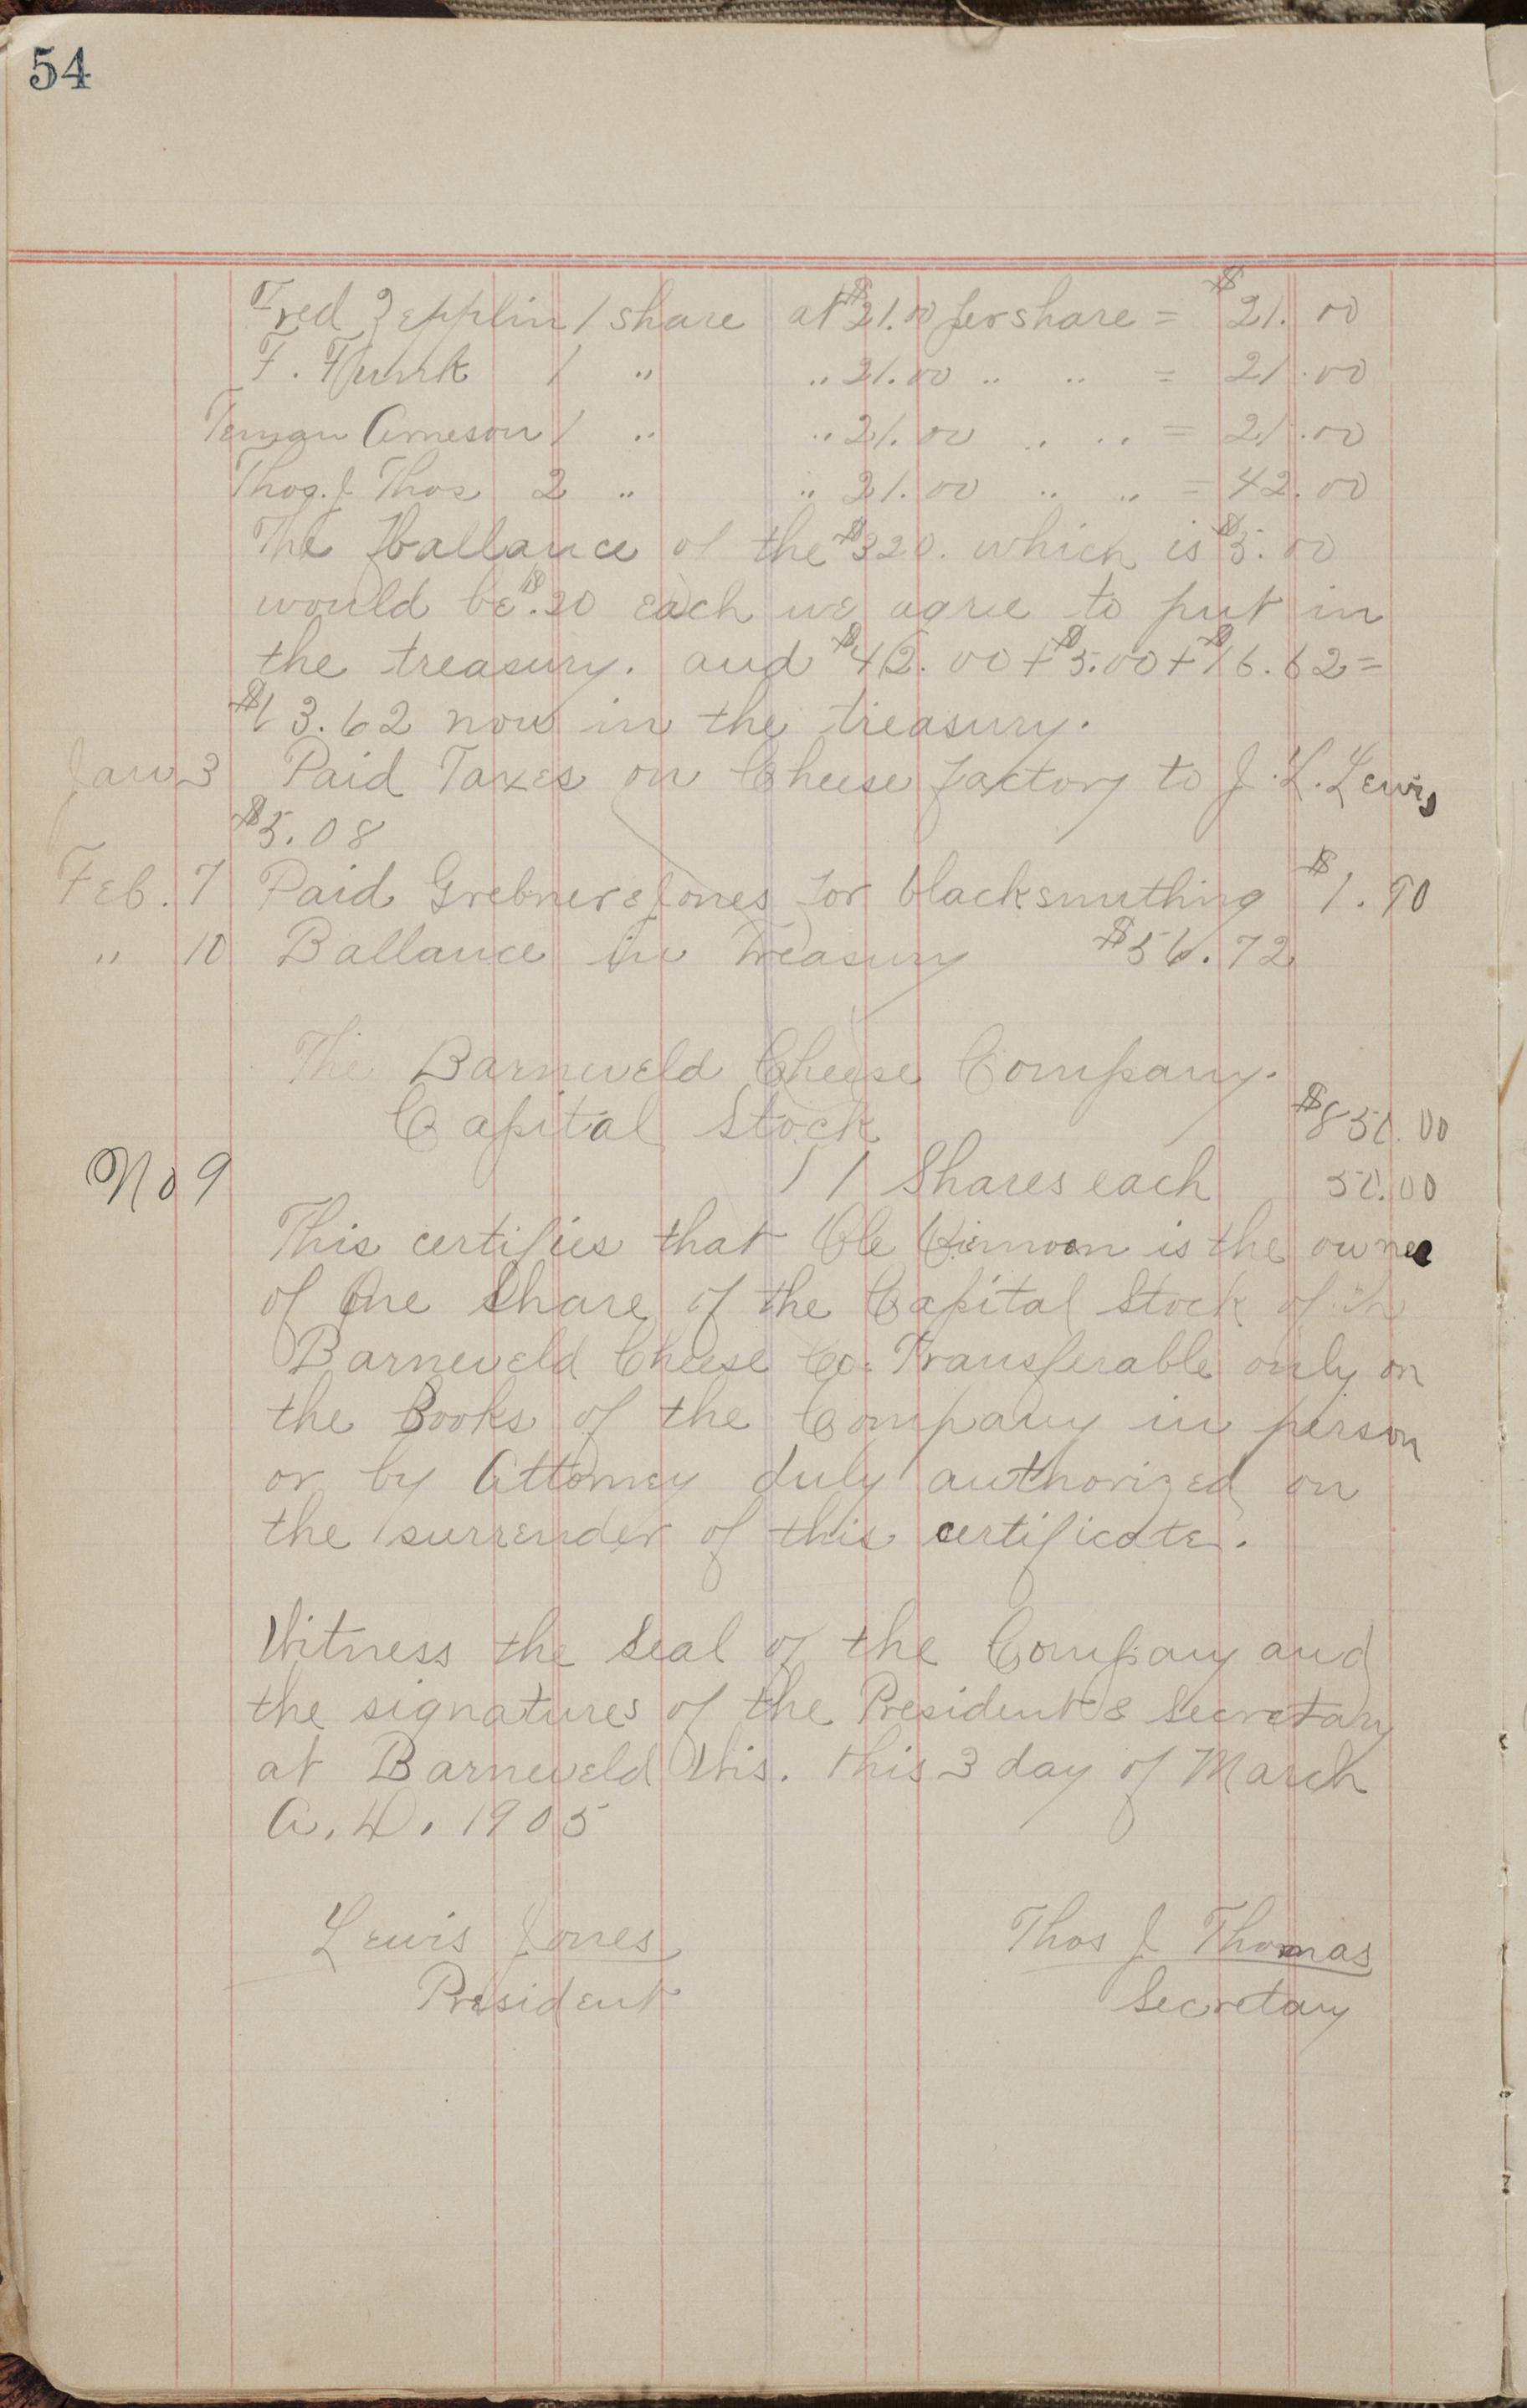 54
Fred Zepplin 1 share at $21.00 per share = $21.00
F. Flunk 1 " " 21.00 " " = 21.00
Teman Arneson 1 " " 21.00 " " = 21.00
Thos. J. Thos 2 " " 21.00 " " = 42.00
The Ballance of the $320. which is $5.00
would be $.20 each we agree to put in
the treasury. and $42.00 + $5.00 + $16.62 =
$63.62 now in the treasury.
Jan 3 Paid Taxes on Cheese factory to J. L. Lewis
$5.08
Feb. 7 Paid Grebner & Jones for blacksmithing $1.90
" 10 Ballance in Treasury $56.72
The Barneveld Cheese Company.
Capital Stock $850.00
No 9 17 Shares each 50.00
This certifies that Ole is the owner
of One Share of the Capital Stock of Th
Barneveld Cheese Co. Transferable only on
the Books of the Company in person
or by Attorney duly authorized on
the surrender of this certificate.
Witness the Seal of the Company and
the signatures of the President & Secretary
at Barneveld Wis. this 3 day of March
A. D. 1905
Lewis Jones Thos J Thomas
President Secretary